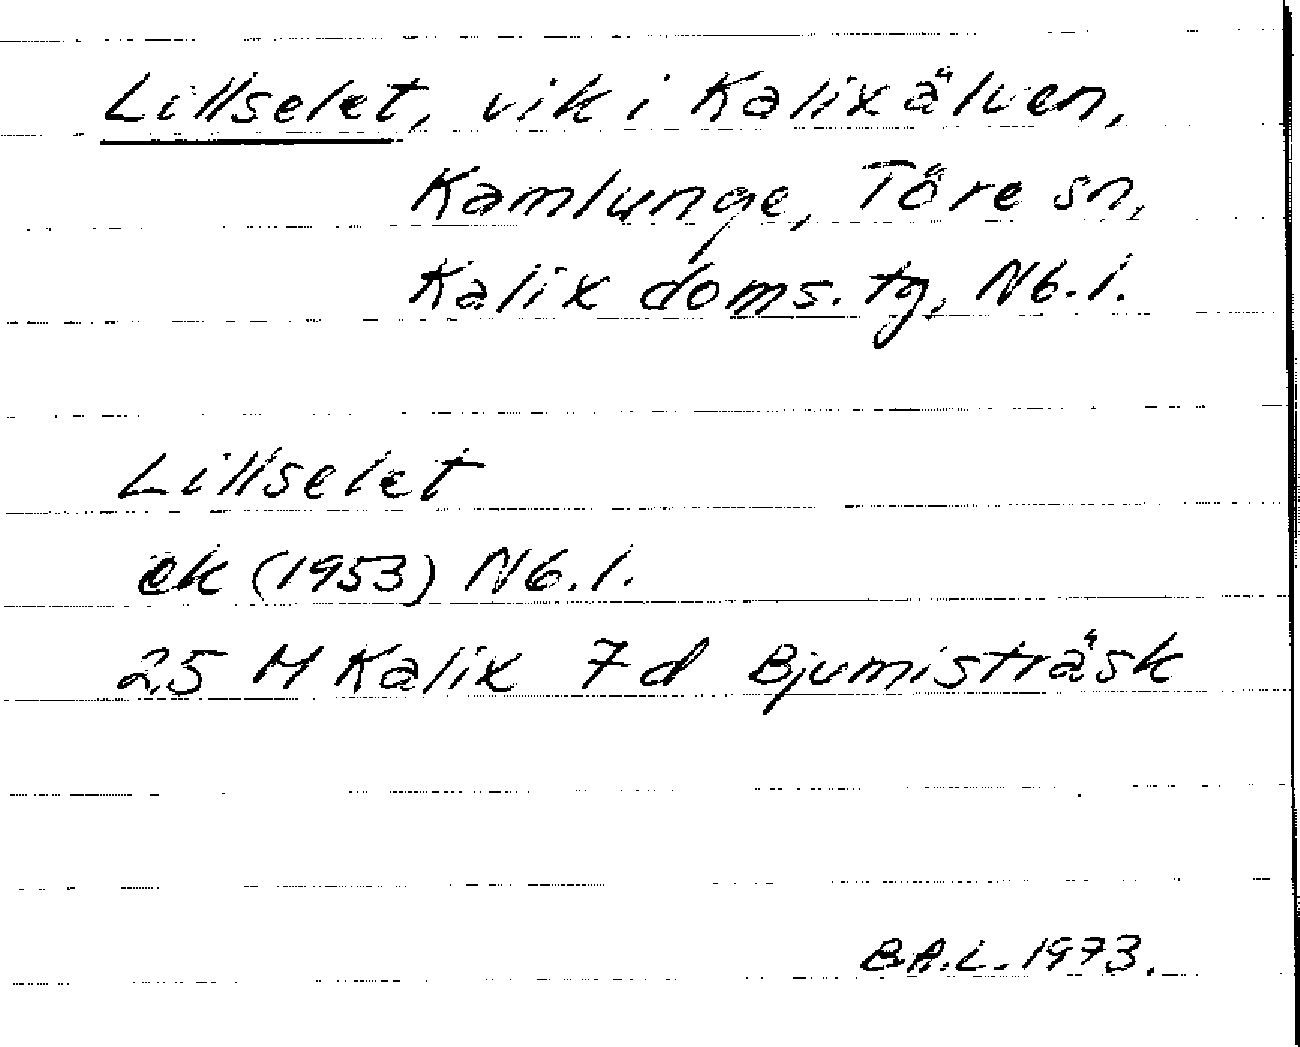 Lillselet, vik i Kalixälven,
Kamlunge, Töre sn,
Kalix doms. tg, Nb. l.
Lillselet
ek (1953) Nb. l.
25 M Kalix 7d Bjumisträsk
B.A.L. 1973.